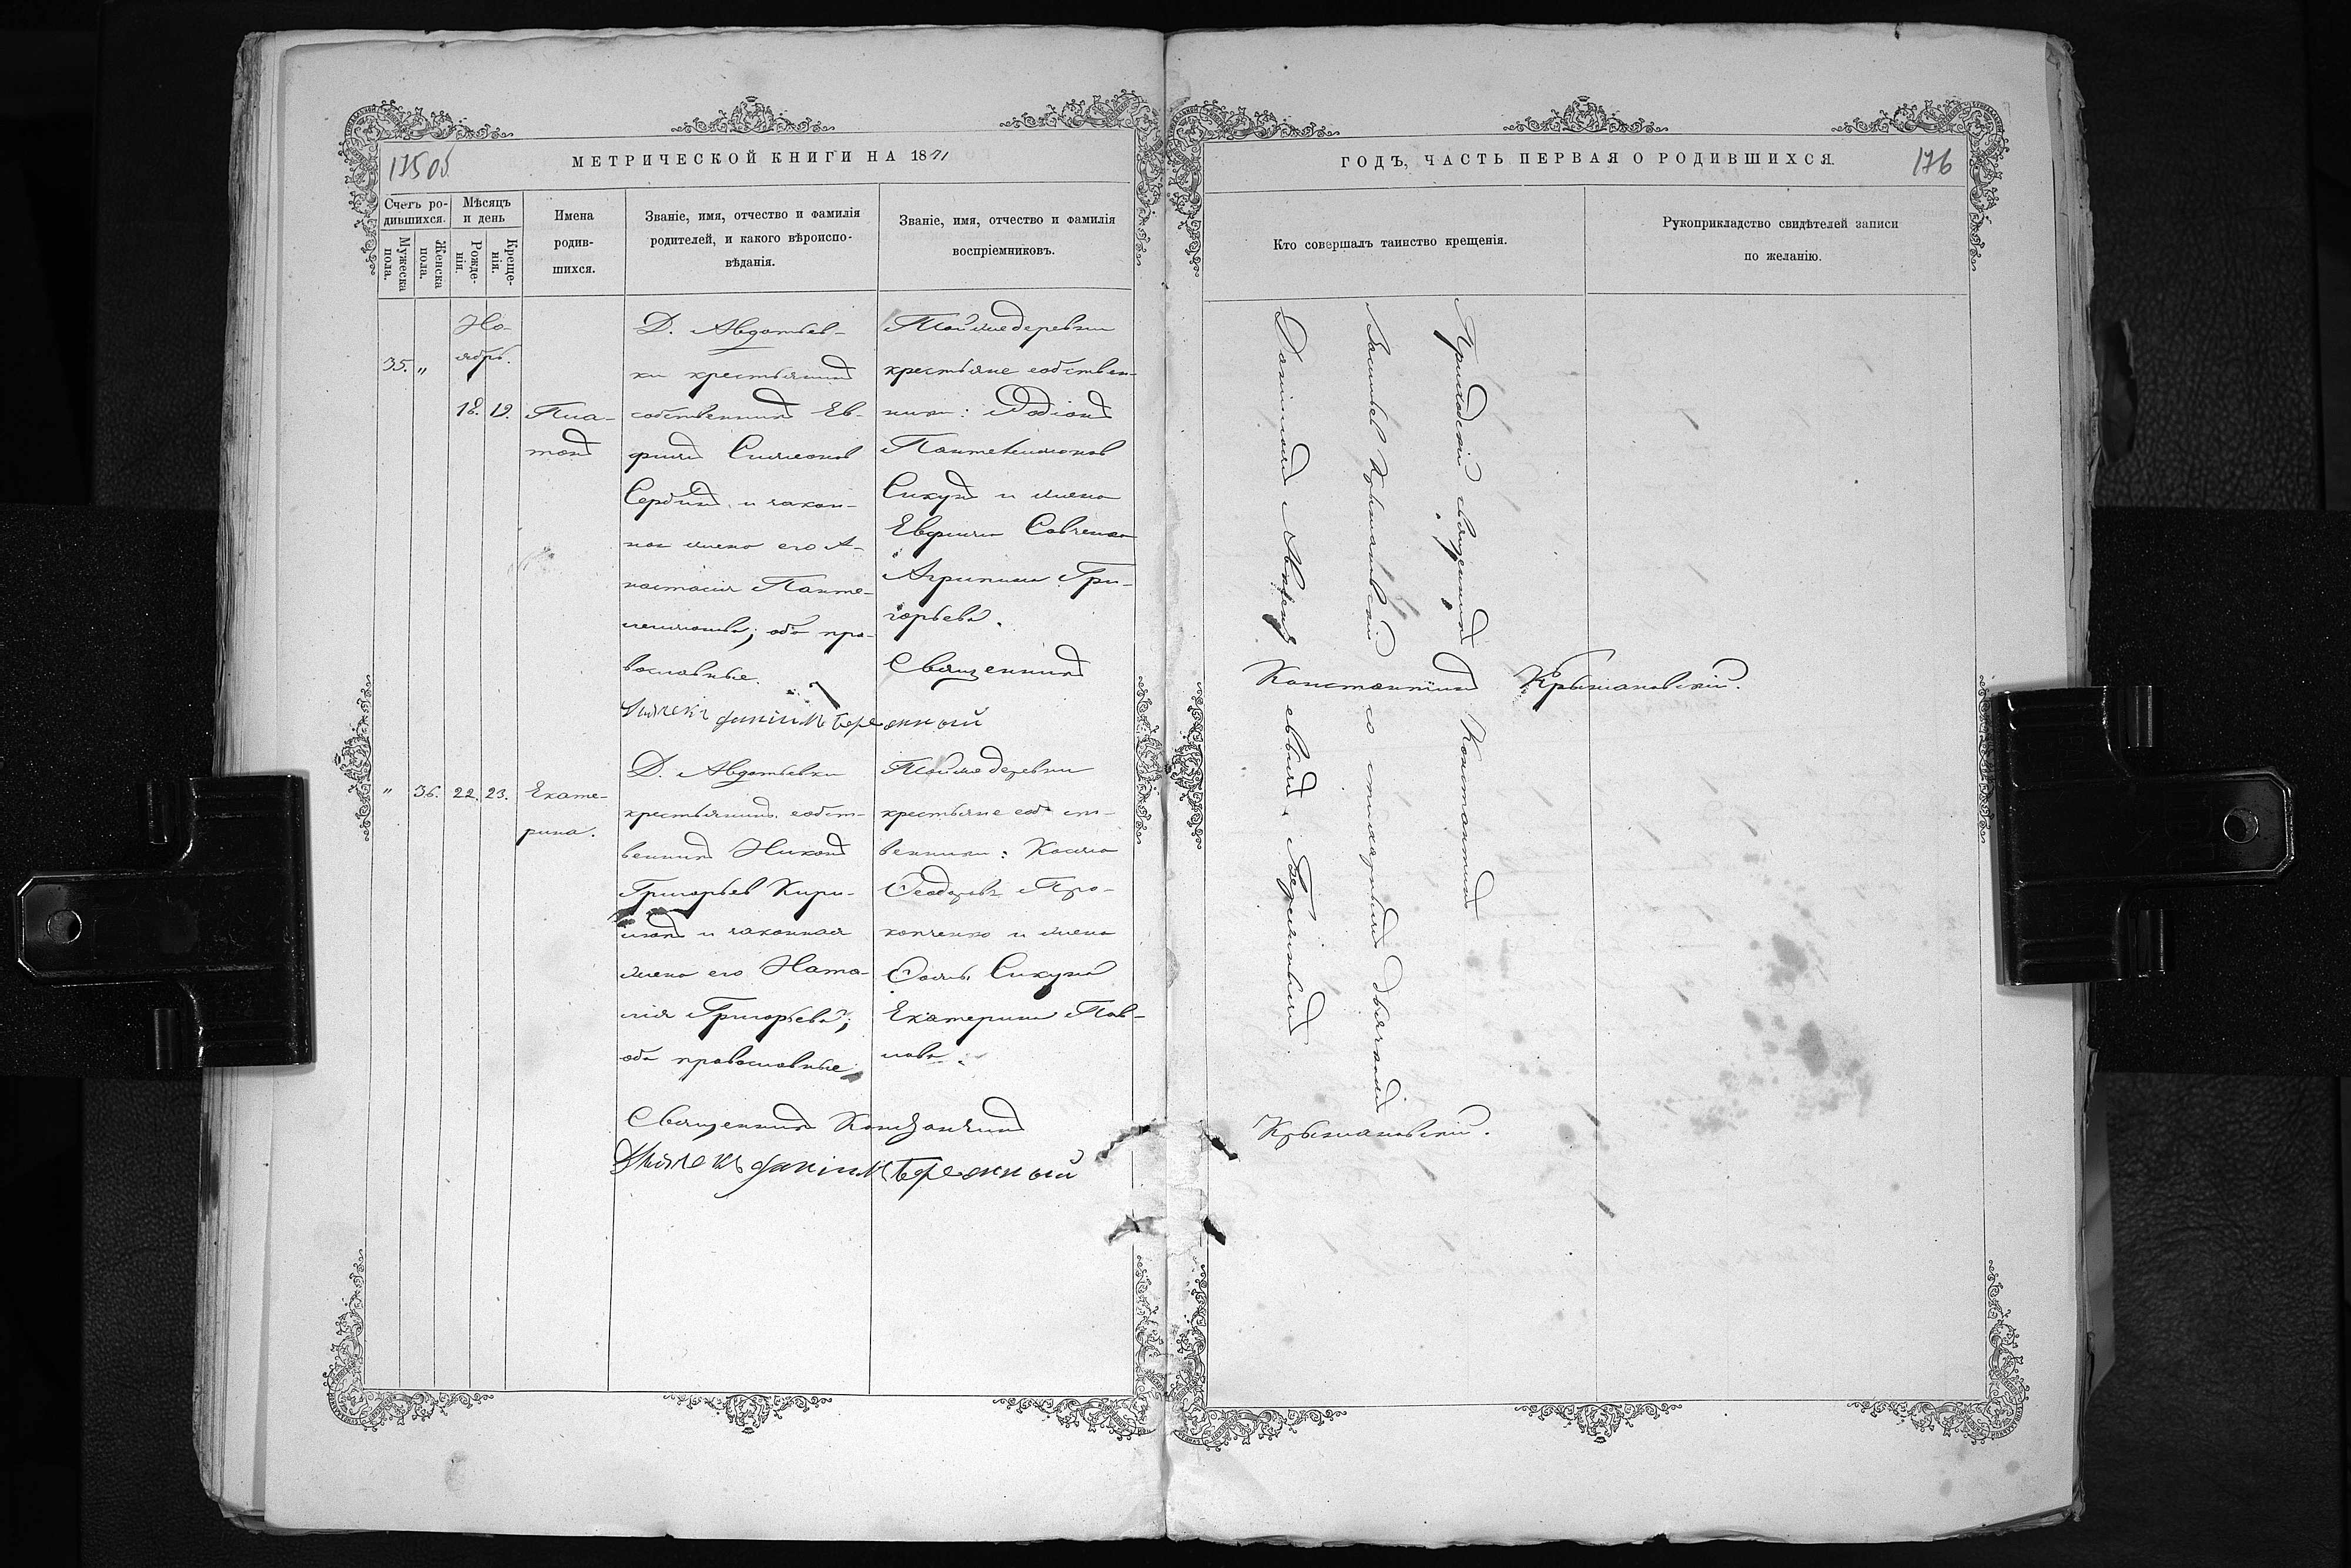 175об
МЕТРИЧЕСКОЙ КНИГИ НА 1871
Счетъ ро-
дившихся.
Мужеска
пола.
Женска
пола.
Мѣсяцъ
и день
Рожде-
нія.
Креще-
нія.
Имена
родив-
шихся.
Званіе, имя, отчество и фамилія
родителей, и какого вѣроиспо-
вѣданія.
Званіе, имя, отчество и фамилія
воспріемниковъ.
35. „
Но-
ябрь.
18. 19.
Пла-
тонъ
Д. Авдотьев-
ки крестьянинъ
собственникъ Ев-
фимъ Симеоновъ
Сербинъ и закон-
ная жена его А-
настасія Панте-
леимонова; оба пра-
вославные.
Той же деревни
крестьяне собствен-
ники: Родіонъ
Пантелеимоновъ
Сикузъ и жена
Евфима Савченка
Агрипина Гри-
горьева.
Священникъ
Бережный
„ 36. 22. 23.
Екате-
рина.
Д. Авдотьевки
крестьянинъ собст-
венникъ Никонъ
Григорьев Кири-
и законная
жена его Ната-
лія Григорьева;
оба православные.
Той же деревни
крестьяне собст-
венники: Косма
Феодоровъ Про-
копченко и жена
Сикуза
Екатерина Пав-
лова.
Священникъ Константинъ
Бережный
ГОДЪ, ЧАСТЬ ПЕРВАЯ О РОДИВШИХСЯ.
176
Кто совершалъ таинство крещенія.
Рукоприкладство свидѣтелей записи
по желанію.
Приходскій священникъ Константинъ
Крыжановскій со стихарнымъ дьячкомъ
Бережнымъ
Константинъ Крыжановскій.
Крыжановскій.